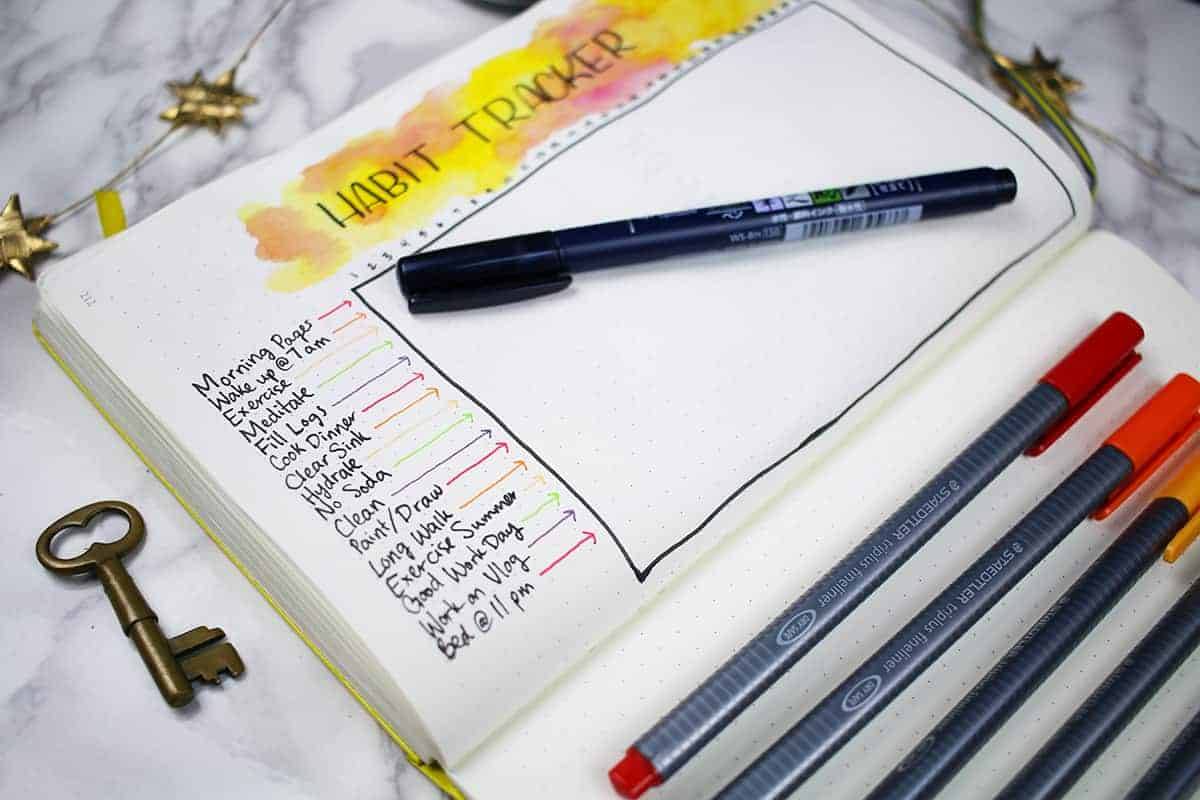 212
HABIT TRACKER
1 2 3 4 5 6 7
Morning Pages
Wake up @ 7 am
Exercise
Meditate
Fill Logs
Cook Dinner
Clear Sink
Hydrate
No Soda
Clean
Paint/Draw
Long Walk
Exercise Summer
Good Work Day
Work on Vlog
Bed @ 11 pm
WS-BH
STAEDTLER triplus fineliner
DRY SAFE
STAEDTLER triplus fineliner
DRY SAFE